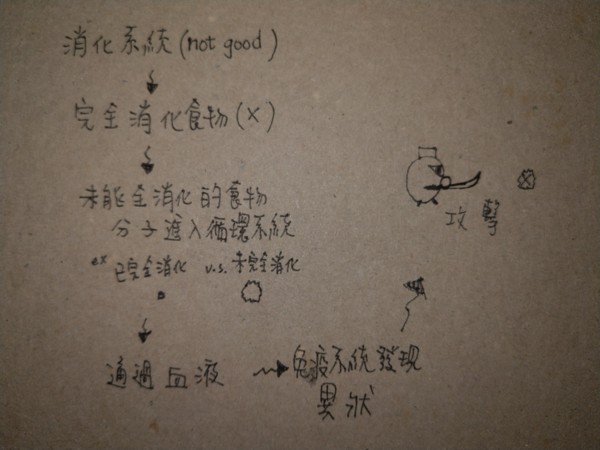 消化系統(not good)
完全消化食物(X)
未能全消化的食物
分子進入循環系統
ex 已完全消化 v.s. 未完全消化
攻擊
通過血液
免疫系統發現
異狀